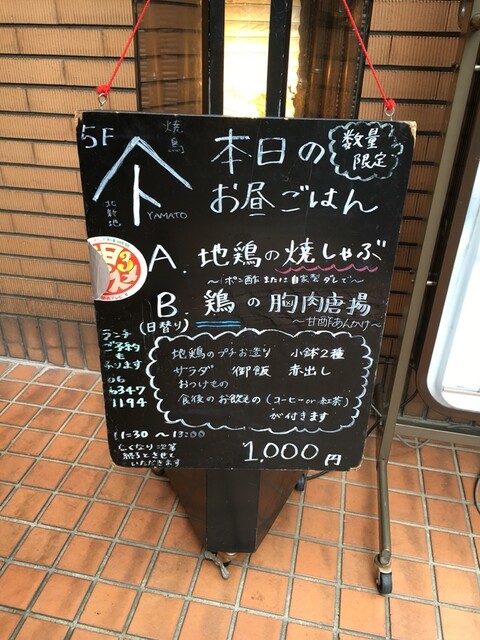 5F
焼鳥
北新地
YAMATO
本日の
お昼ごはん
数量
限定
A. 地鶏の焼しゃぶ
〜ポン酢または自家製ダレで〜
B. 鶏の胸肉唐揚
(日替り)
〜甘酢あんかけ〜
地鶏のプチお造り 小鉢2種
サラダ 御飯 赤出し
おつけもの
食後のお飲もの (コーヒーor紅茶)
が付きます
ランチ
ご予約
も
承ります
06
6347
1194
11:30 〜 13:00
なくなり次第
終了とさせて
いただきます
1,000円